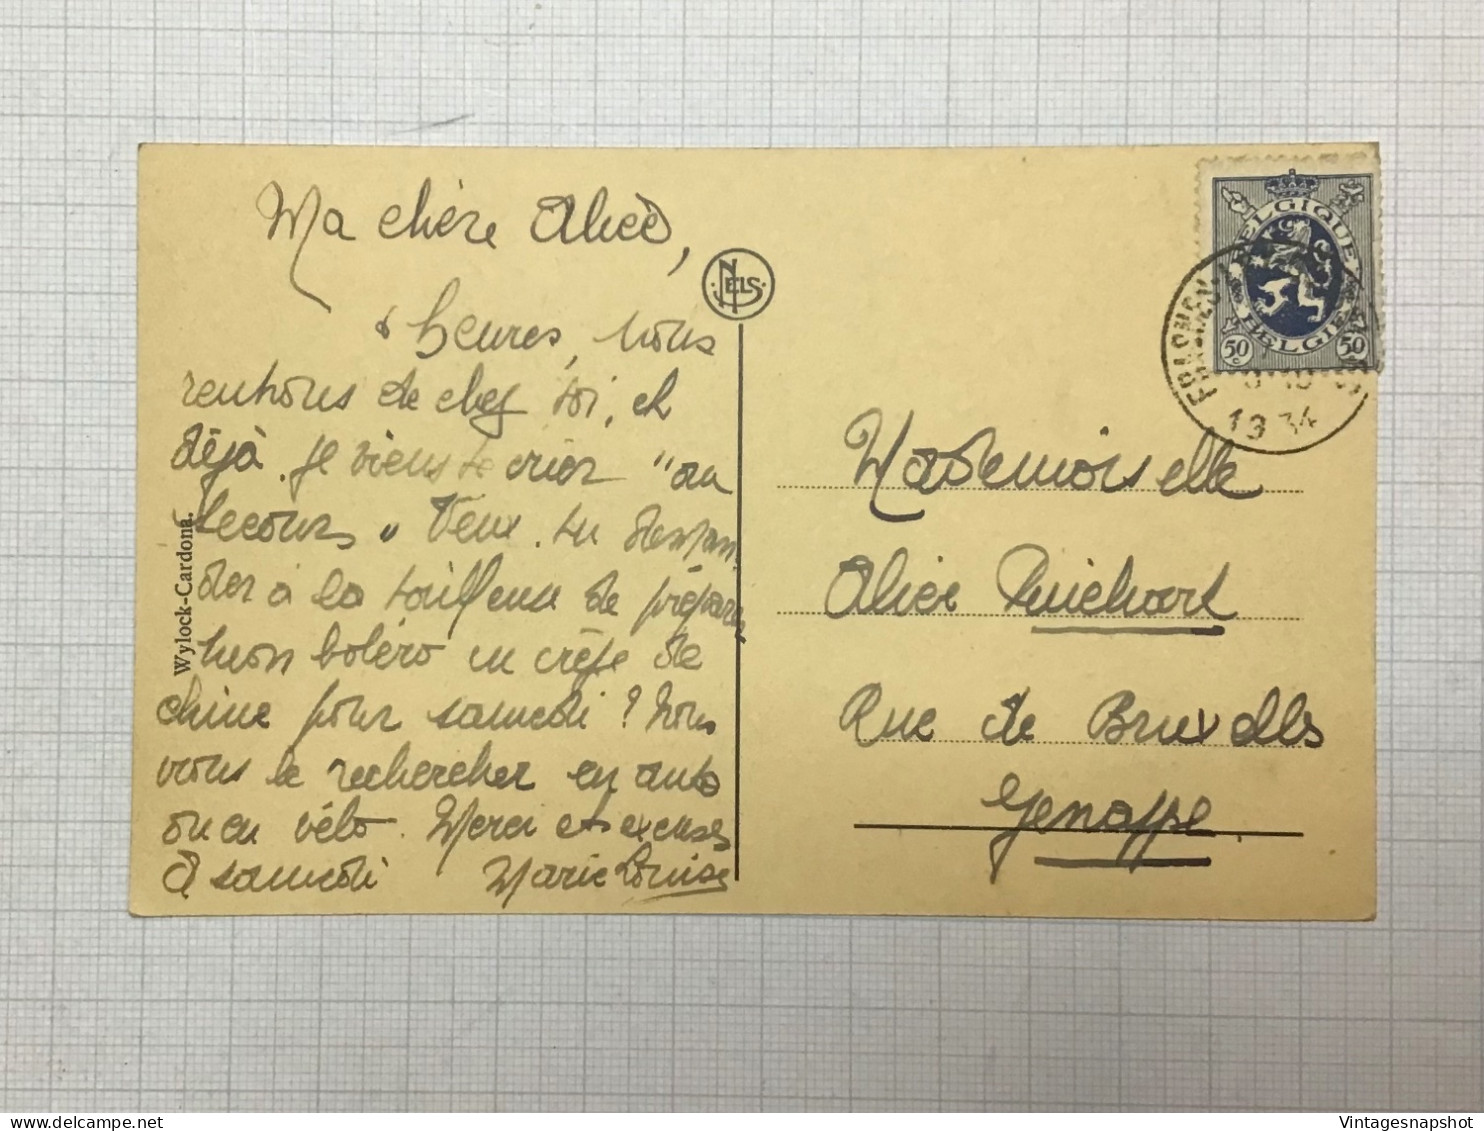 Ma chère Alice,
8 heures, nous
rentrons de chez toi, et
déjà je viens te crier "au
secours" Veux-tu deman-
der à la tailleuse de préparer
mon boléro en crêpe de
chine pour samedi? Nous
irons le rechercher en auto
ou en vélo. Merci et excuses
A samedi Marie Louise
NELS
Wylock-Cardona.
BELGIQUE
BELGIË
50 c
50 c
1934
Mademoiselle
Alice
Rue de Bruxelles
Genappe.
Vintagesnapshot